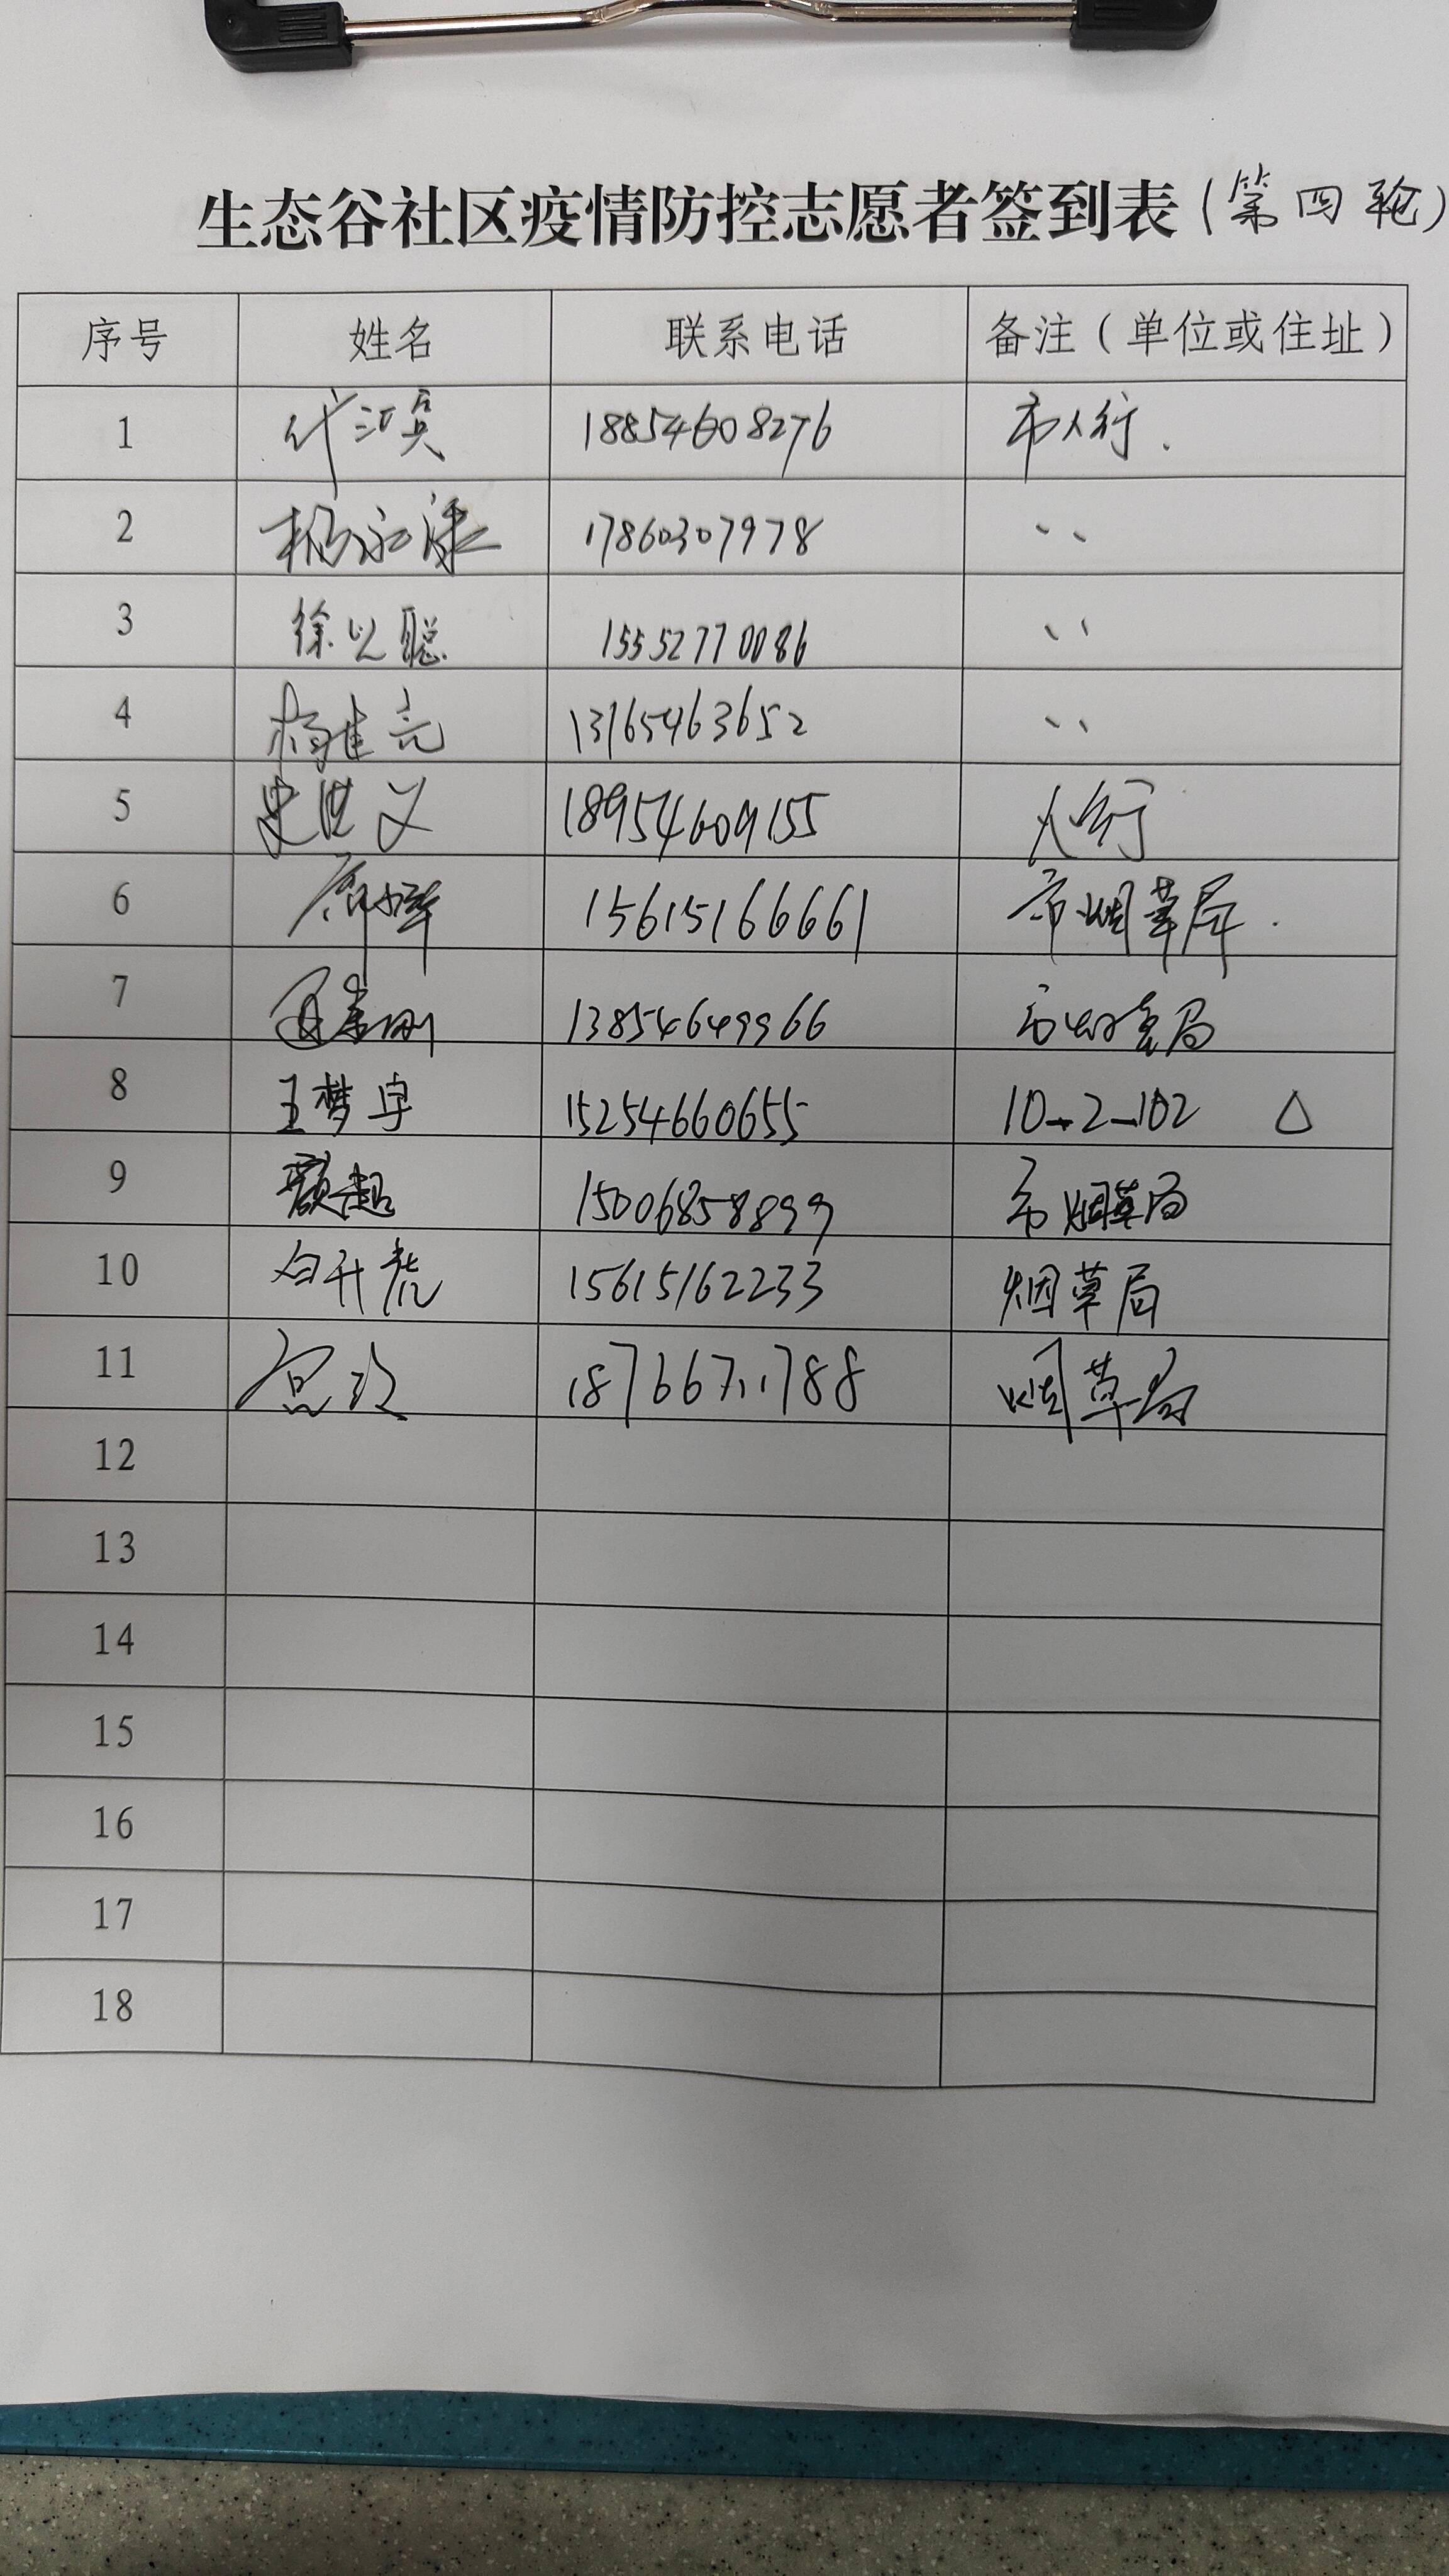 生态谷社区疫情防控志愿者签到表(第四轮)
序号 姓名 联系电话 备注(单位或住址)
1 18854608276 市人行.
2 杨 17860307978 〃
3 徐以聪 15552770086 〃
4 杨佳亮 13165463652 〃
5 史世义 18954609155 人行
6 15615166661 市烟草局.
7 13854649966 市烟草局
8 王梦宇 15254660655 10-2-102 △
9 15006858899 市烟草局
10 白升虎 15615162233 烟草局
11 18766711788 烟草局
12
13
14
15
16
17
18